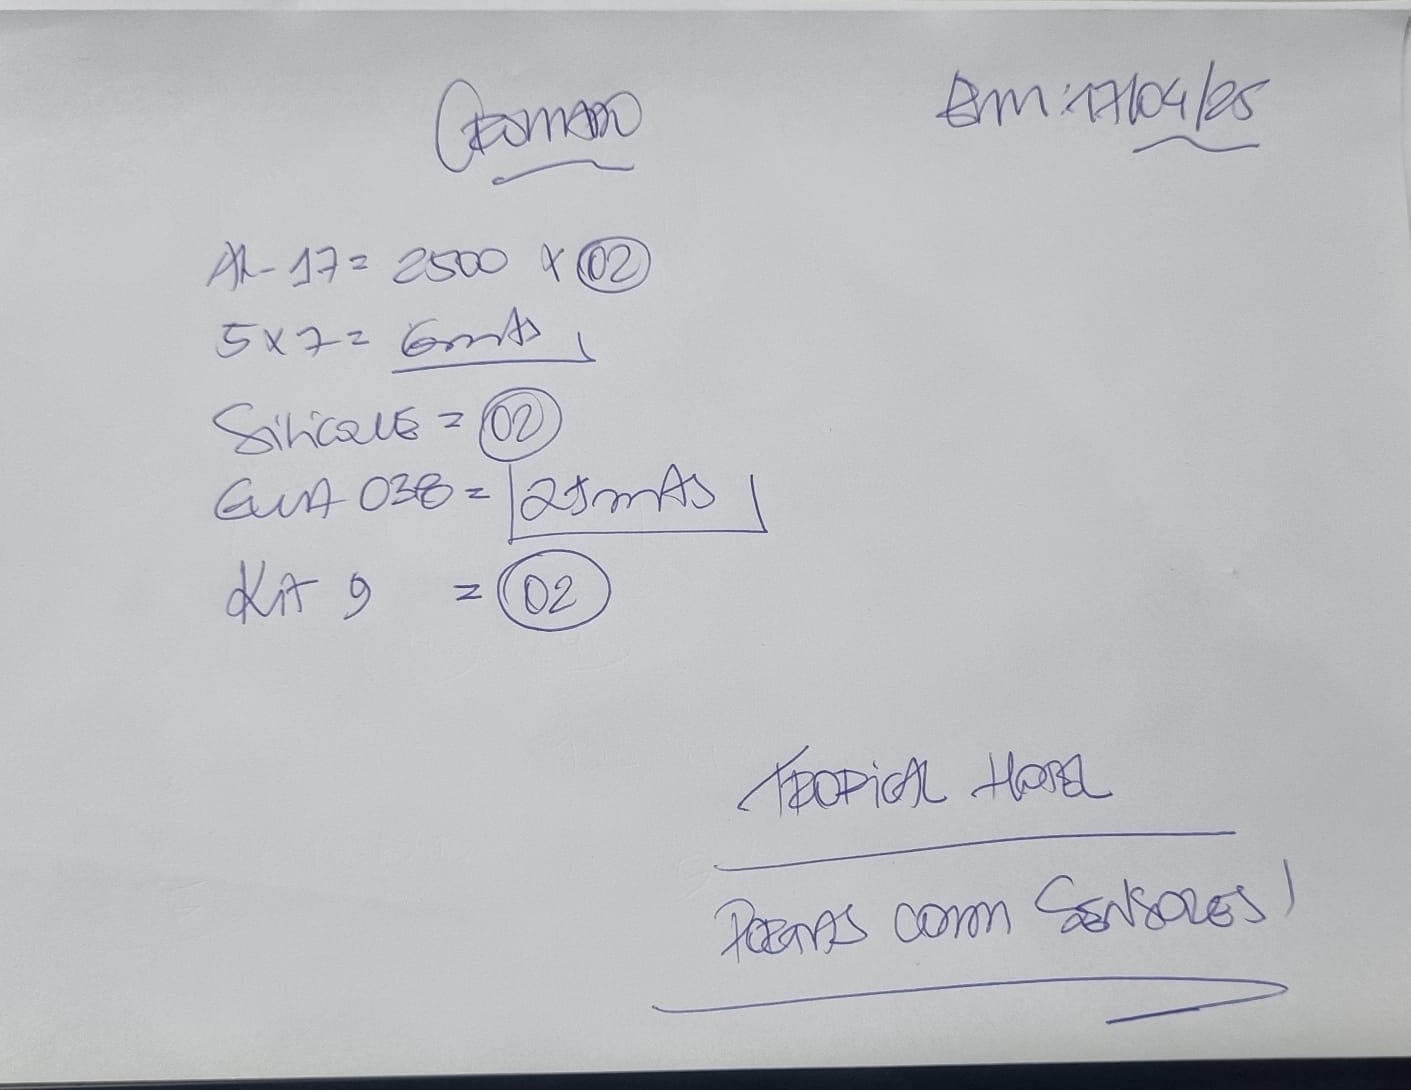 Romano
Em: 17/04/25
AL-17= 2500 x 02
5x7= 6mts
Silicone = 02
038 = 25mts
Kit 9 = 02
Tropical Hotel
Portas com Sensores!